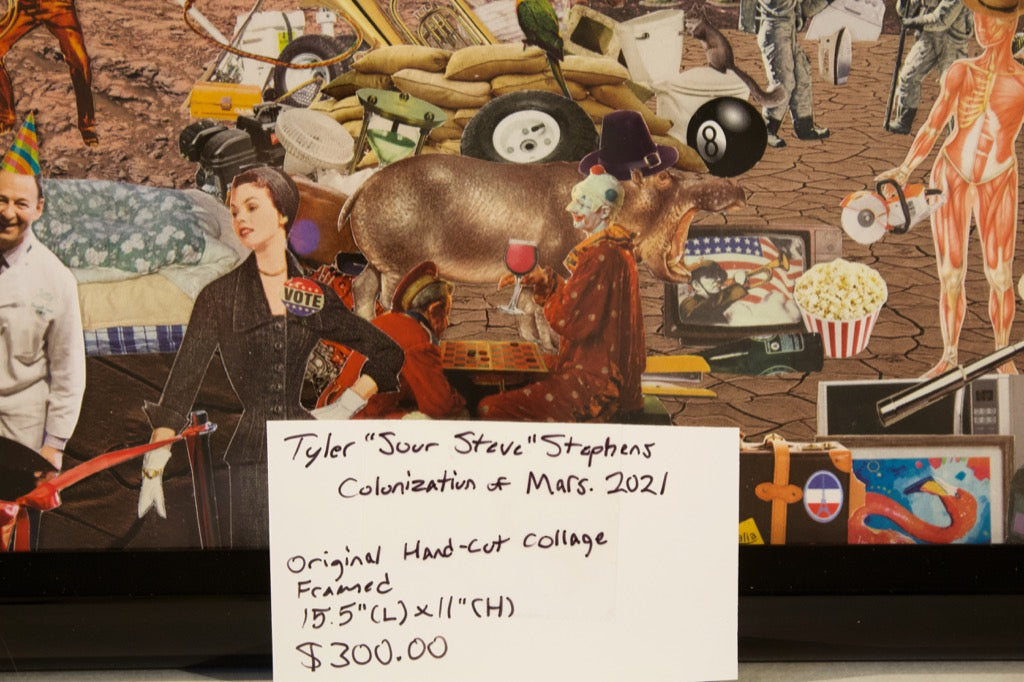 8
VOTE
Tyler "Sour Steve" Stephens
Colonization of Mars. 2021
Original Hand-Cut Collage
Framed
15.5"(L) x 11"(H)
$300.00
alia